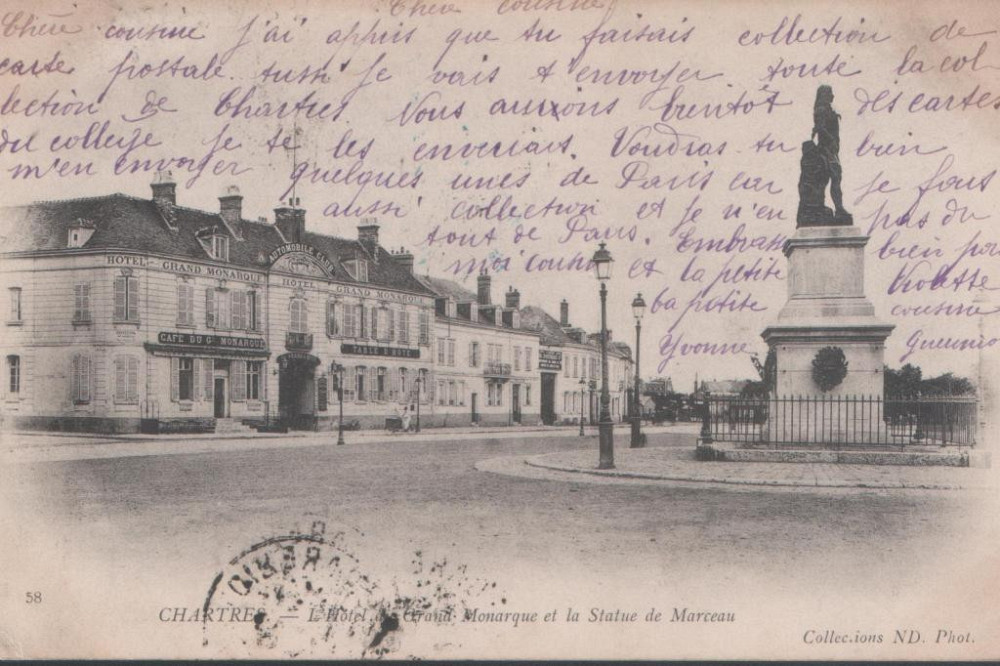 Chère cousine
Chère cousine j'ai appris que tu faisais collection de
carte postale. aussi je vais t'envoyer toute la col
lection de Chartres. Nous aurons bientôt des cartes
du collège je te les enverrait. Voudras tu bien
m'en envoyer quelques unes de Paris car je fais
aussi collection et je n'en pas du
tout de Paris. Embrasse bien pour
moi et la petite
ta petite cousine
Yvonne
AUTOMOBILE CLUB
HOTEL - GRAND MONARQUE
HOTEL GRAND MONARQUE
CAFE DU G. MONARQUE
TABLE D'HOTE
58
CHARTRES. — L'Hôtel du Grand Monarque et la Statue de Marceau
Collections ND. Phot.